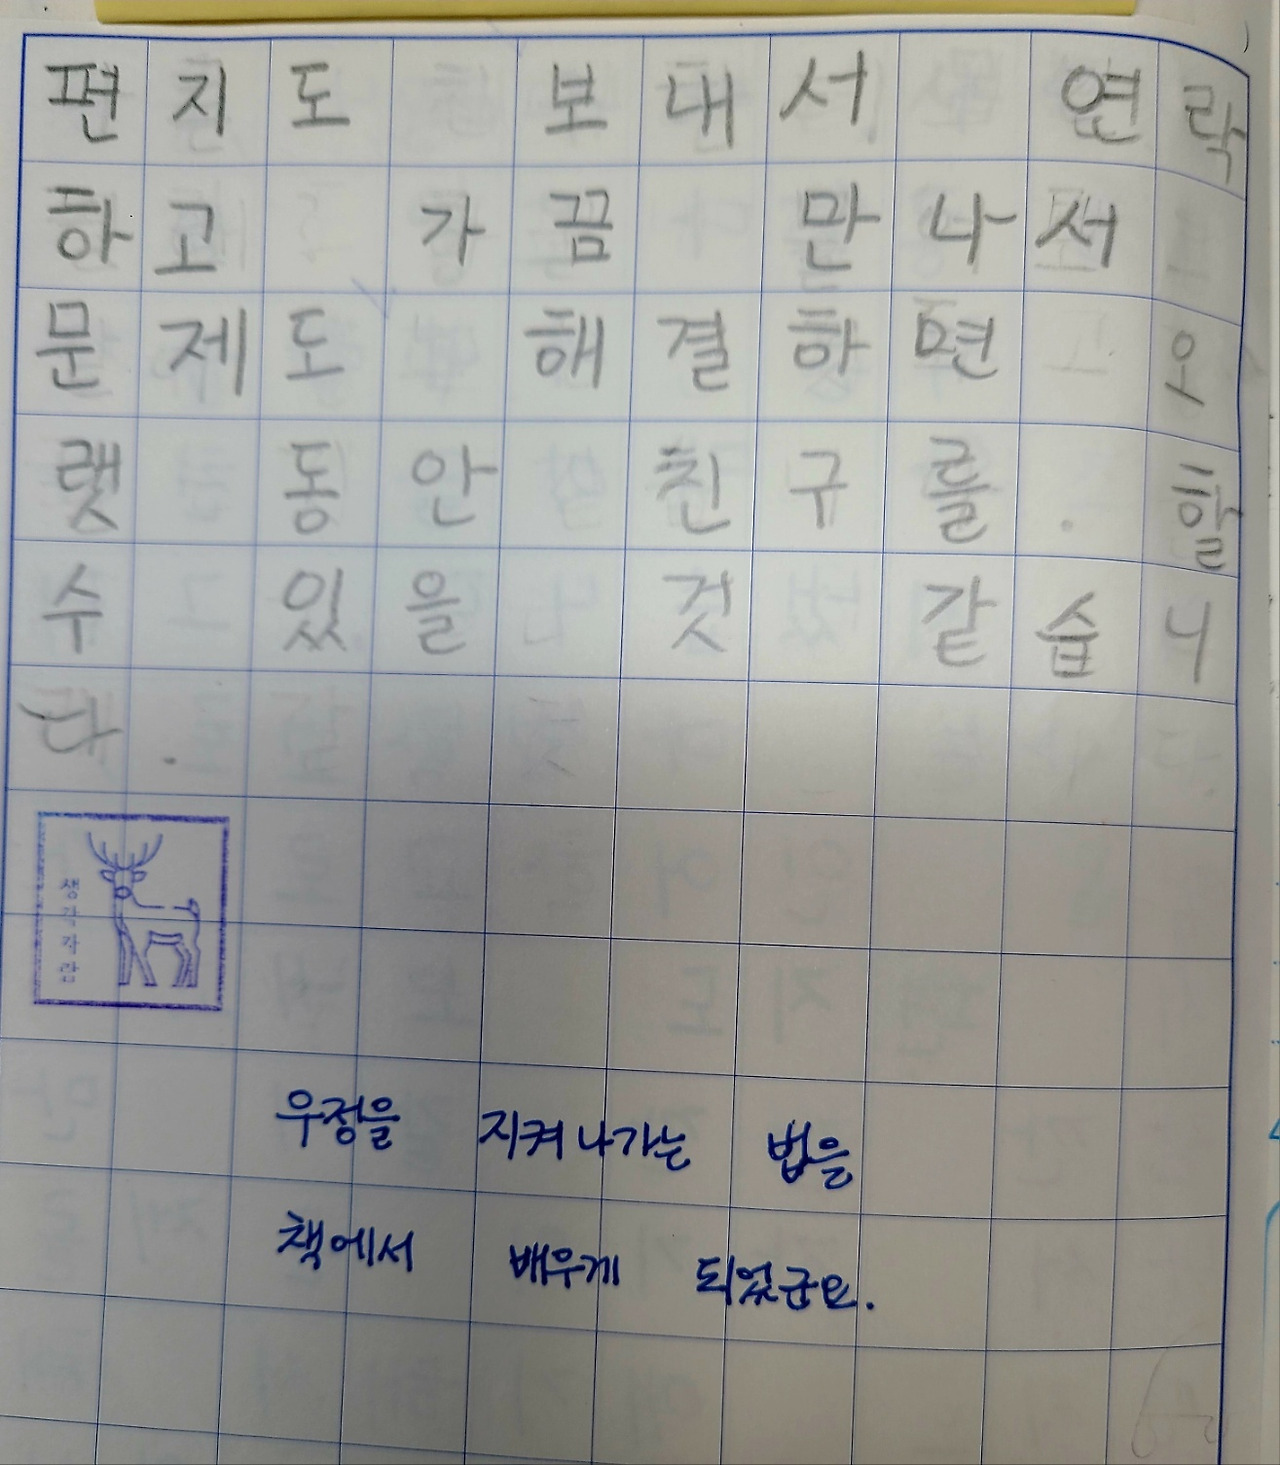 편지도 보내서 연락
하고 가끔 만나서
문제도 해결하면 오
랫 동안 친구를. 할
수 있을 것 같습니
다.
생각자람
우정을 지켜나가는 법을
책에서 배우게 되었군요.